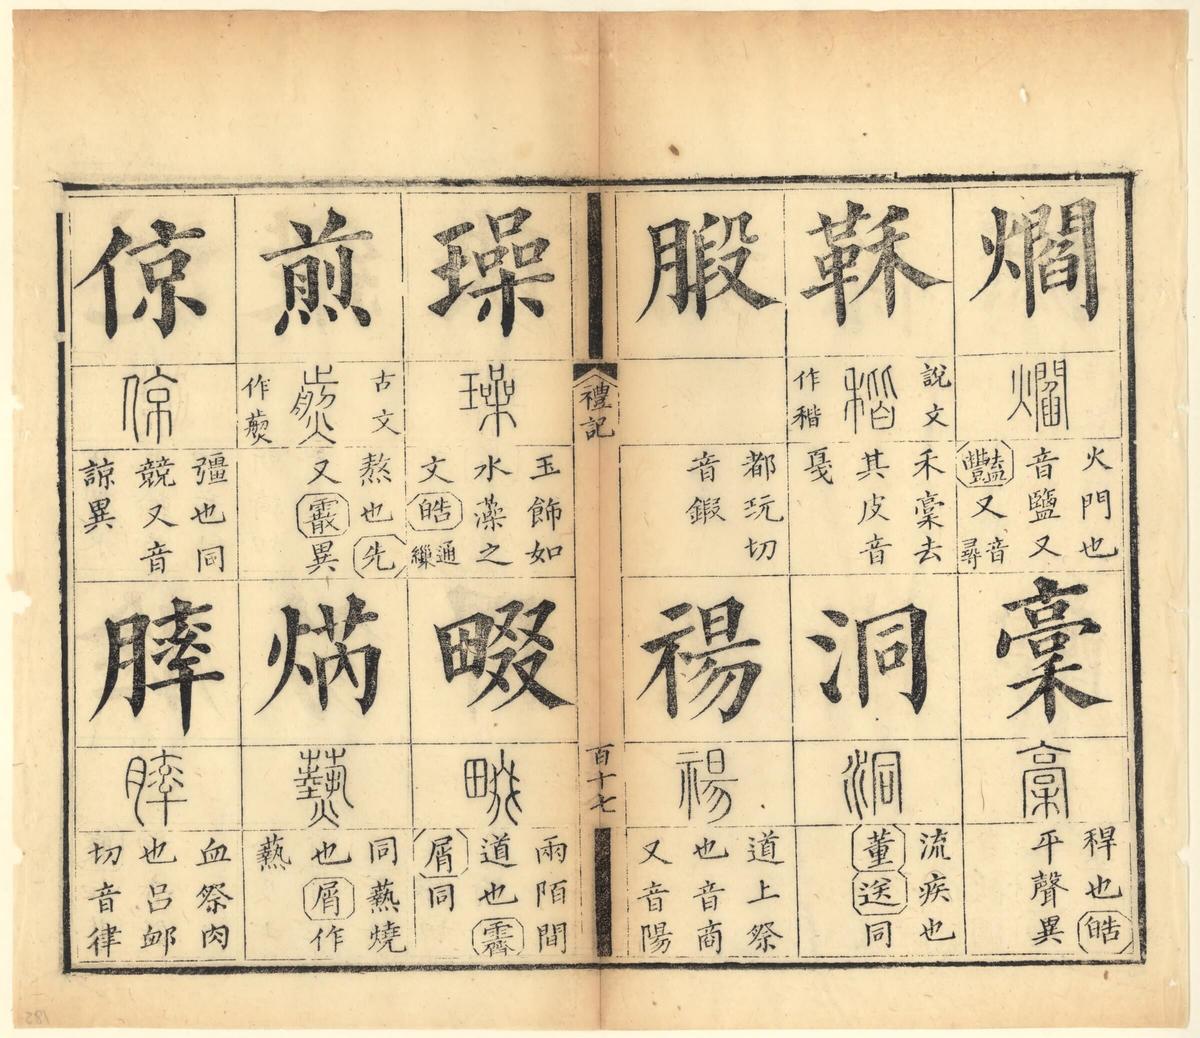 爓
爓
火門也
音鹽又
豔又音尋
稾
稾
稈也皓
平聲異
鞂
說文
稭
作稭
禾稾去
其皮音
戛
洞
洞
流疾也
董送同
腶
都玩切
音鍛
禓
禓
道上祭
也音商
又音陽
禮記
百十七
璪
璪
玉飾如
水藻之
文皓通繅
畷
畷
兩陌間
道也霽
屑同
煎
古文
熬也先
又霰異
焫
爇
同爇燒
也屑作
爇
倞
倞
彊也同
競又音
諒異
膟
膟
血祭肉
也呂卹
切音律